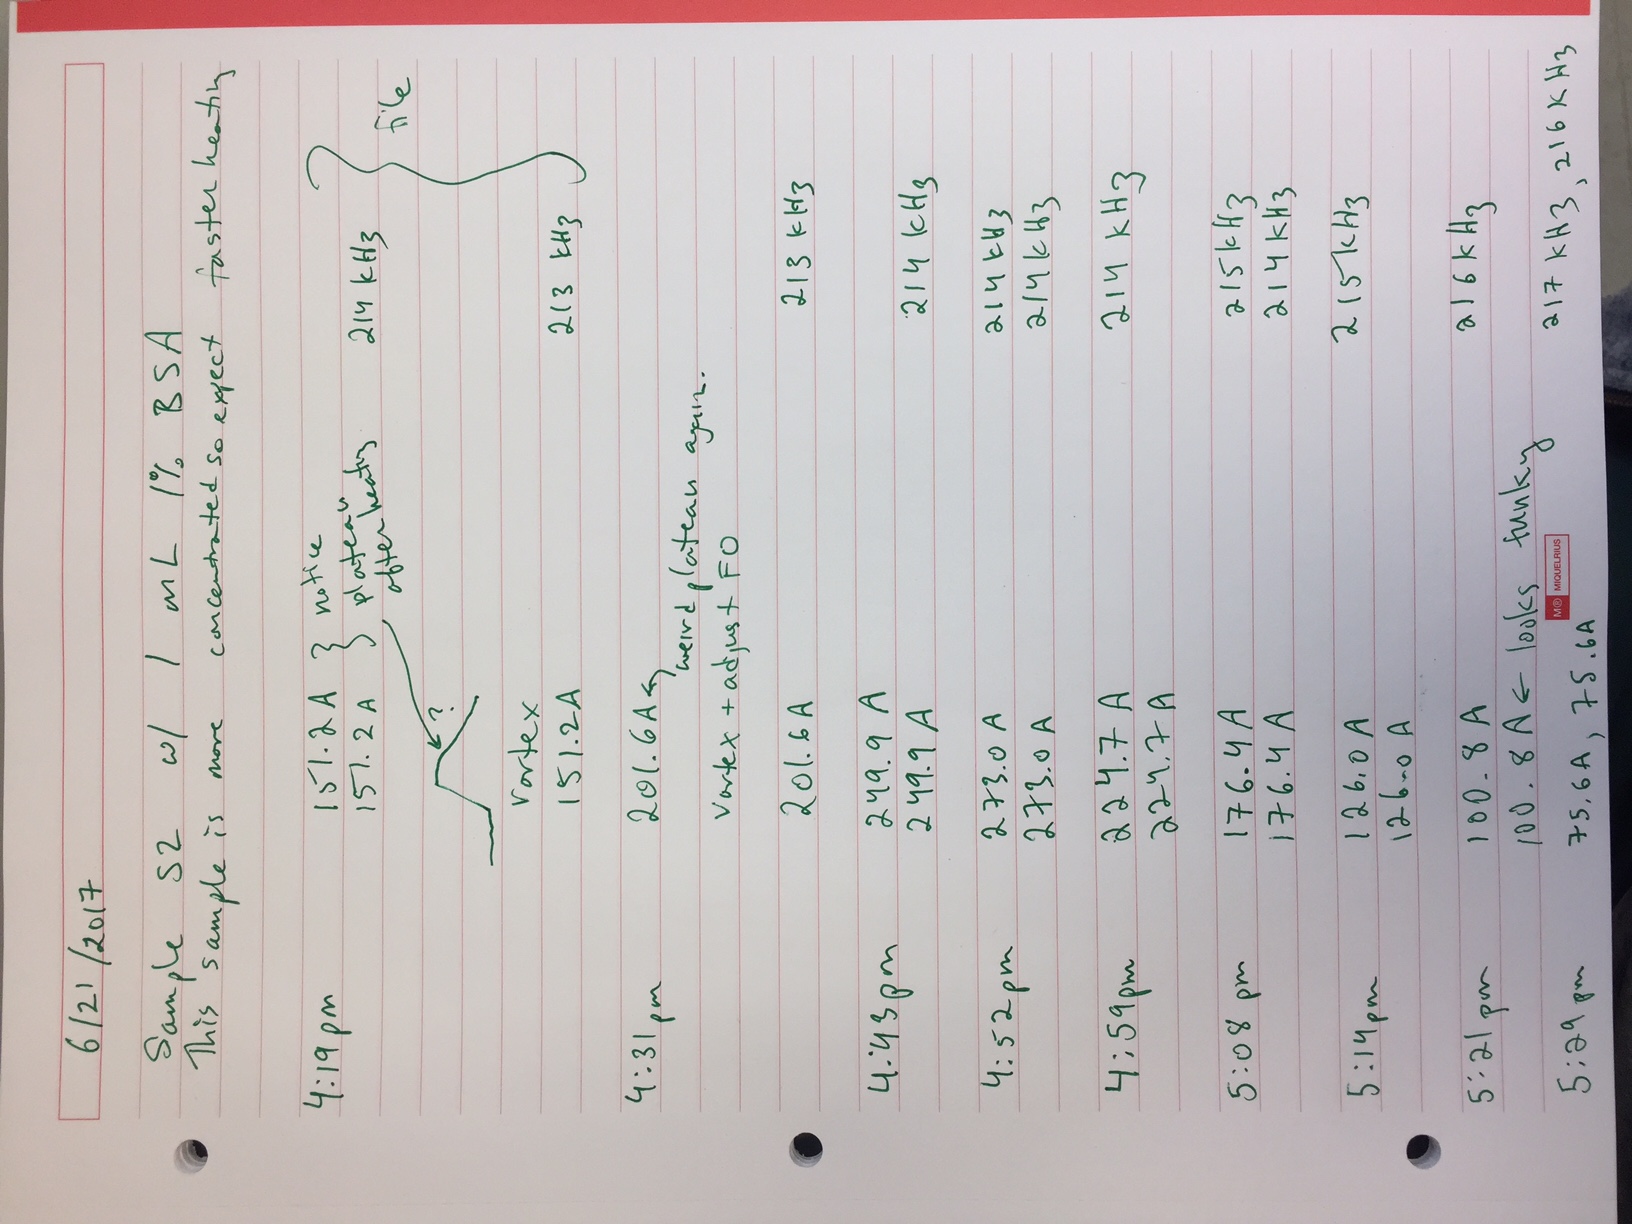 6/21/2017
Sample S2 w/ 1 mL 1% BSA
This sample is more concentrated so expect faster heating
4:19pm 151.2 A notice
151.2 A plateau 214 kHz
after heating file
?
Vortex
151.2A 213 kHz
4:31pm 201.6A
weird plateau again.
Vortex + adjust FO
201.6A 213 kHz
4:43pm 249.9 A
249.9 A 214 kHz
4:52pm 273.0 A 214 kHz
273.0 A 214 kHz
4:59pm 224.7 A 214 kHz
224.7 A
5:08 pm 176.4 A 215 kHz
176.4 A 214 kHz
5:14pm 126.0 A 215 kHz
126.0 A
5:21 pm 100.8 A 216 kHz
100.8 A ← looks funky
M® MIQUELRIUS
5:29 pm 75.6A, 75.6A 217 kHz, 216 kHz